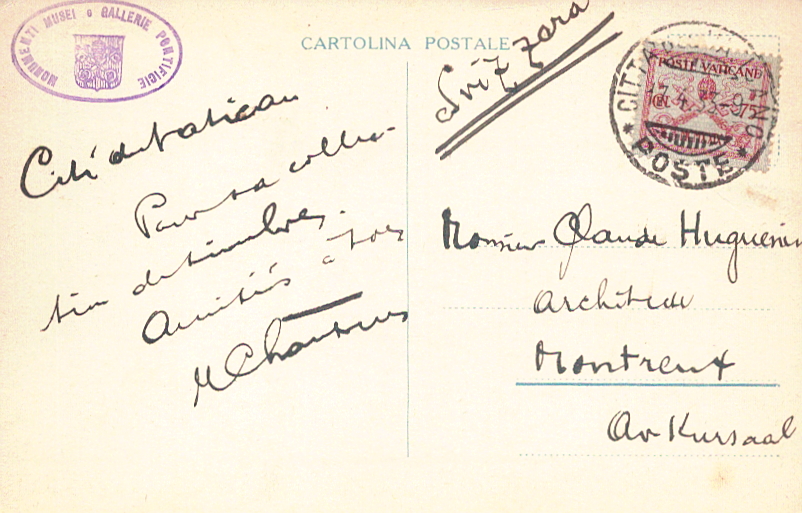 MONUMENTI MUSEI e GALLERIE PONTIFICIE
CARTOLINA POSTALE
Svizzera
POSTE VATICANE
CITTA DEL VATICANO
POSTE
Cité du Vatican
Pour sa collec-
tion de timbres.
Amitiés à tous
Monsieur Claude Huguenin
Architecte
Montreux
Av Kursaal